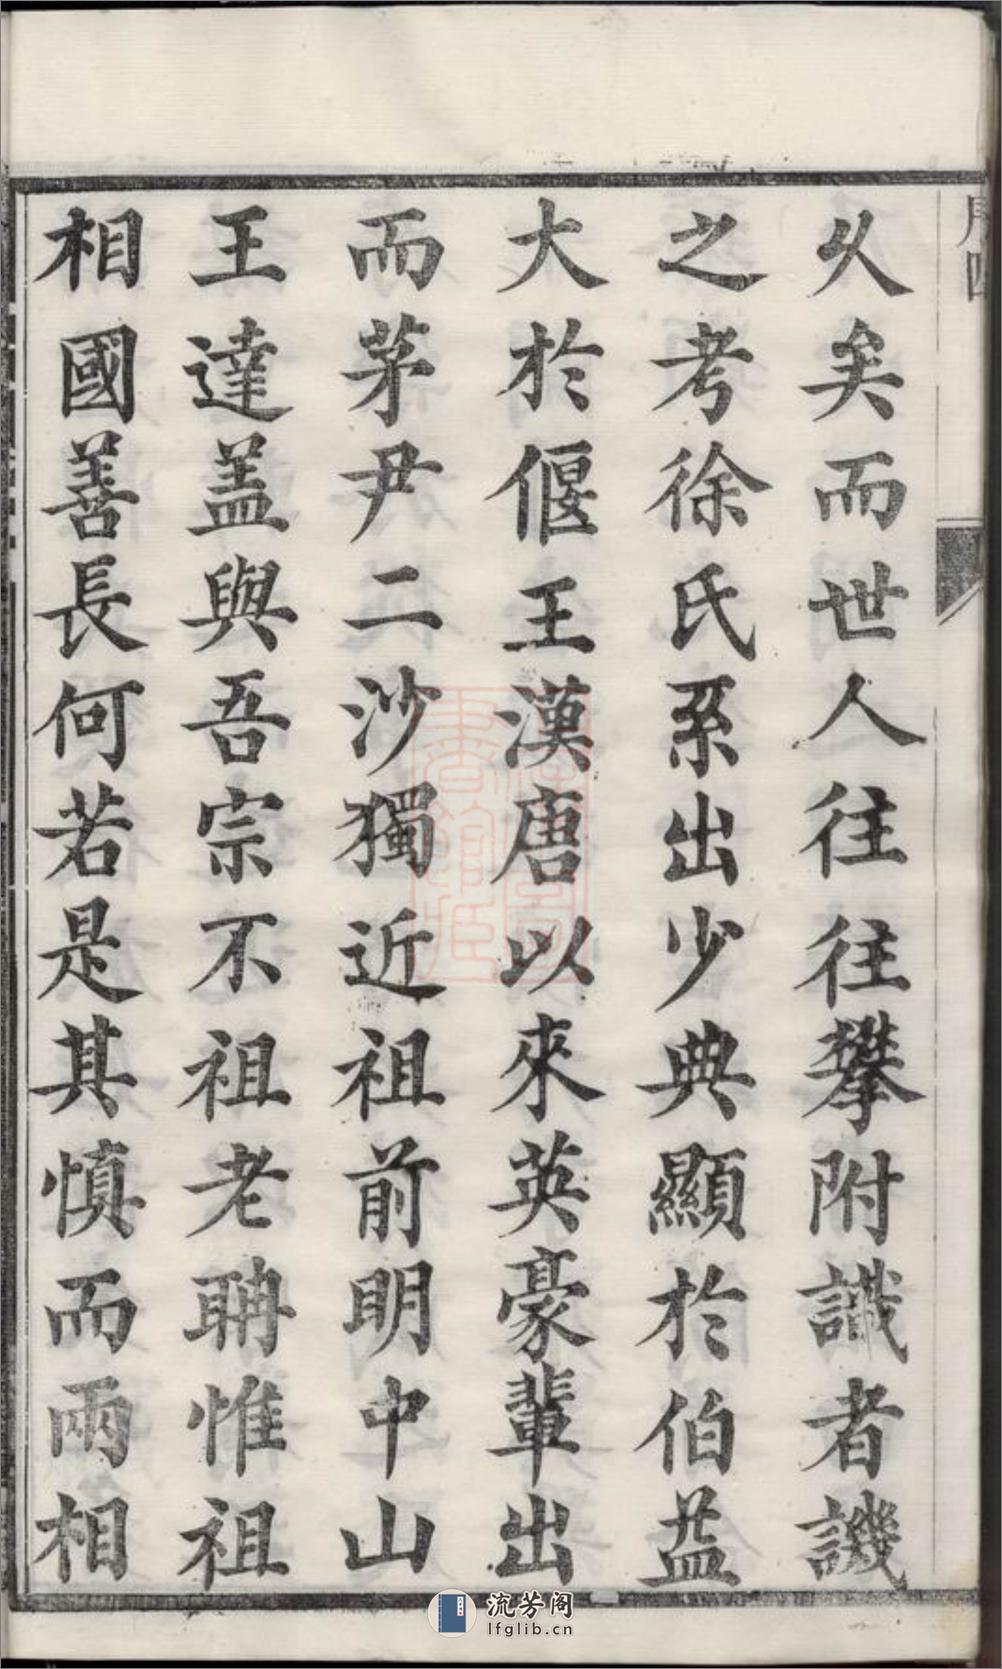 序四
久矣而世人往往攀附識者譏
之考徐氏系出少典顯於伯益
大於偃王漢唐以來英豪輩出
而茅尹二沙獨近祖前明中山
王達盖與吾宗不祖老聃惟祖
相國善長何若是其慎而兩相
流芳阁
lfglib.cn